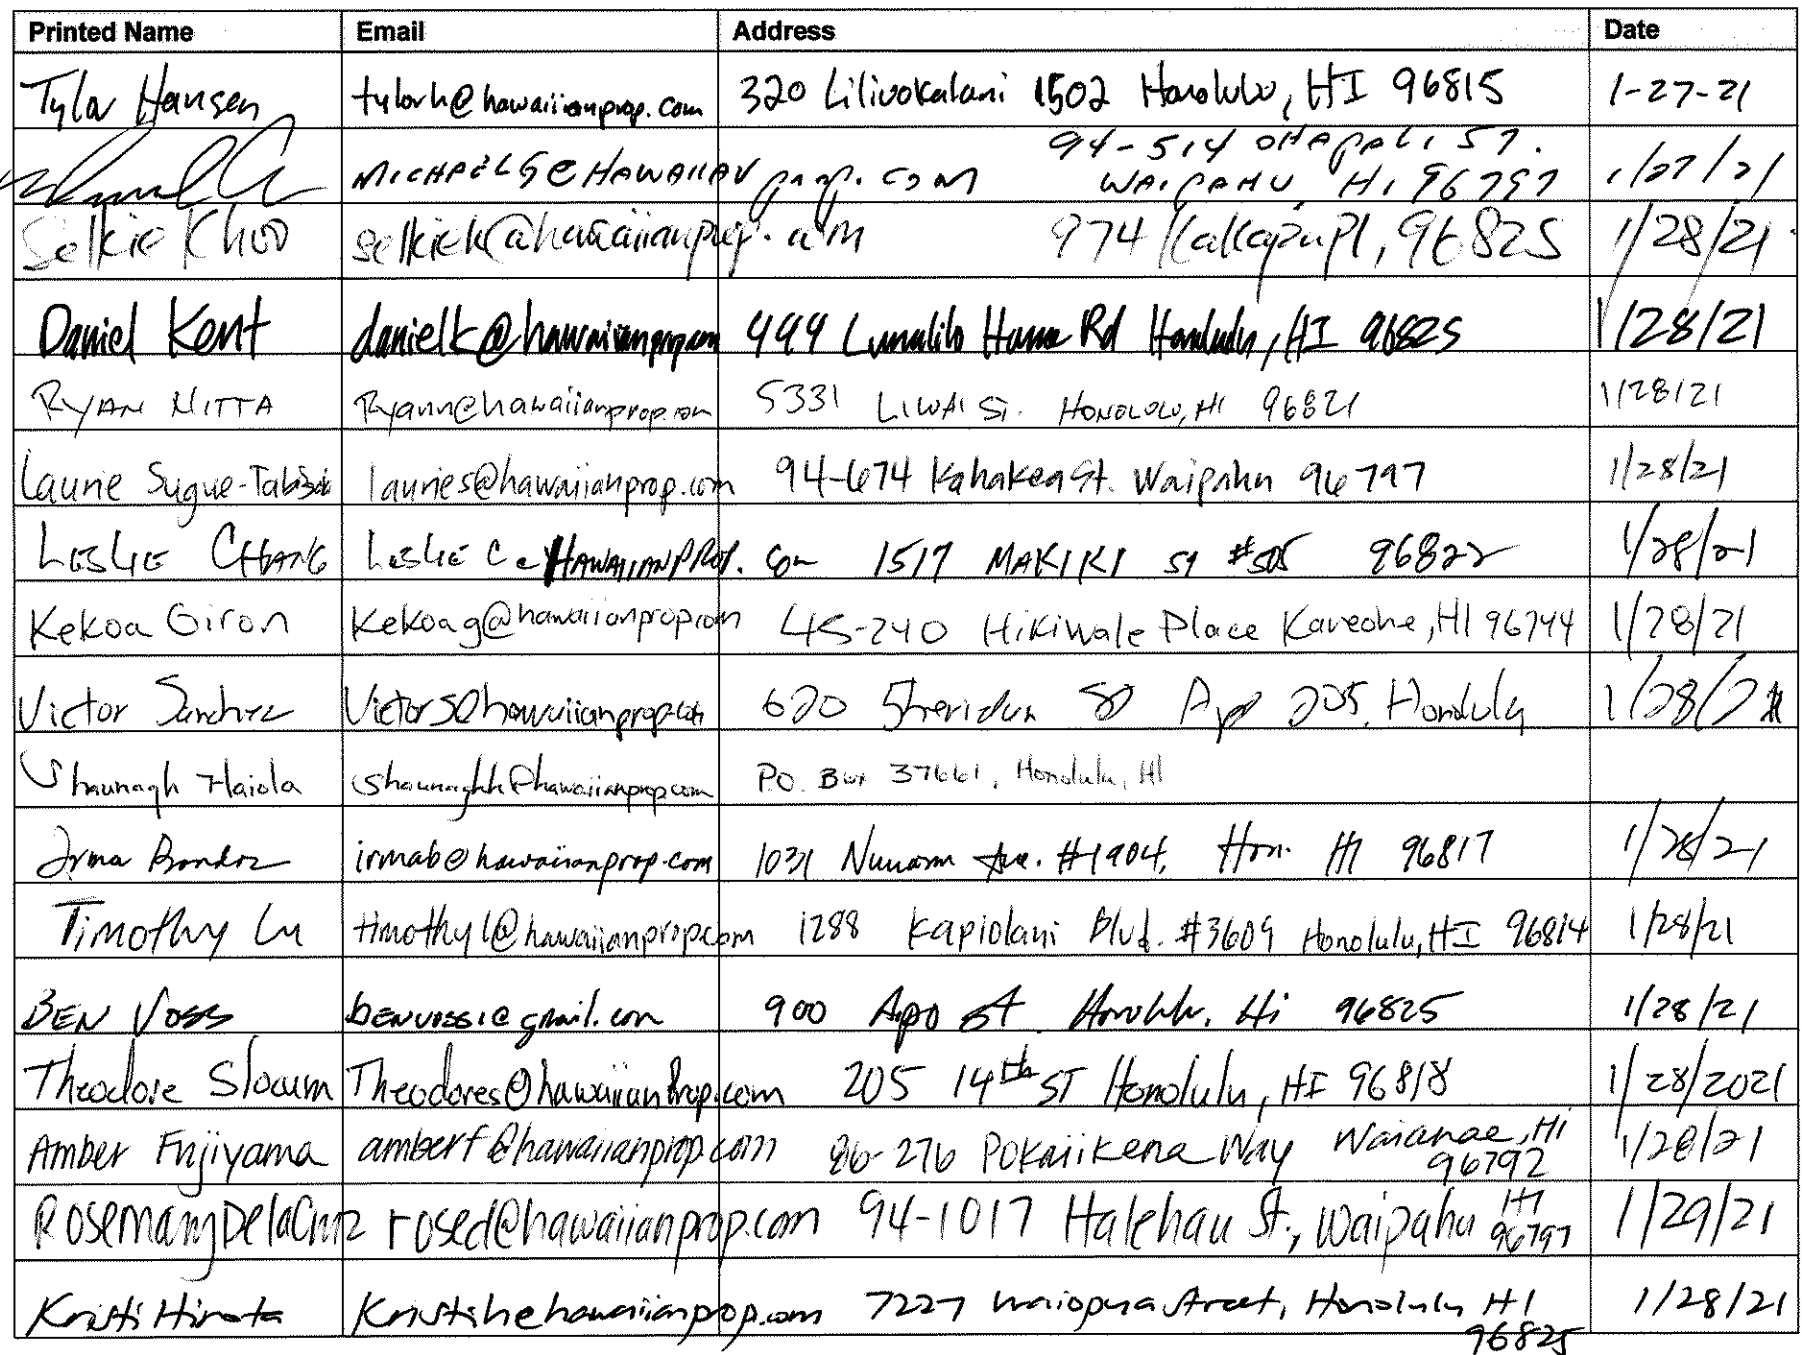 Printed Name Email Address Date
Tylor Hansen tylorh@hawaiianprop.com 320 Liliuokalani 1502 Honolulu, HI 96815 1-27-21
MICHAELG@HAWAIIANprop.com 94-514 St. 1/27/21
WAIPAHU, HI 96797
Selkie Khoo selkiek@hawaiianprop.com 974 Kalkapu Pl, 96825 1/28/21
Daniel Kent danielk@hawaiianprop.com 444 Lunalilo Home Rd Honolulu, HI 96825 1/28/21
RYAN NITTA Ryann@hawaiianprop.com 5331 LIWAI St. HONOLULU, HI 96821 1/28/21
Laurie Sugue- lauries@hawaiianprop.com 94-674 Kahakea St. Waipahu 96797 1/28/21
LESLIE CHANG LESLIE C@HAWAIIANPROP.com 1517 MAKIKI St #505 96822 1/28/21
Kekoa Giron Kekoag@hawaiianprop.com 45-240 Hikiwale Place Kaneohe, HI 96744 1/28/21
Victor Sanchez Victors@hawaiianprop.com 620 Sheridan St Apt 205, Honolulu 1/28/21
Shaunagh Haiola shaunaghh@hawaiianprop.com P.O. Box 37661, Honolulu, HI
Irma irmab@hawaiianprop.com 1031 Nuuanu Ave. #1904, Hon. HI 96817 1/28/21
Timothy Lu timothyl@hawaiianprop.com 1288 Kapiolani Blvd. #3609 Honolulu, HI 96814 1/28/21
BEN VOSS benvoss1@gmail.com 900 Apo St. Honolulu, Hi 96825 1/28/21
Theodore Slocum Theodores@hawaiianProp.com 205 14th ST Honolulu, HI 96818 1/28/2021
Amber Fujiyama amberf@hawaiianprop.com 86-276 Pokaiikena Way Waianae, Hi 1/28/21
96792
Rosemary DelaCruz rosed@hawaiianprop.com 94-1017 Halehau St., Waipahu HI 1/29/21
96797
Kristi Hirota Kristih@hawaiianprop.com 7227 Street, Honolulu HI 1/28/21
96825